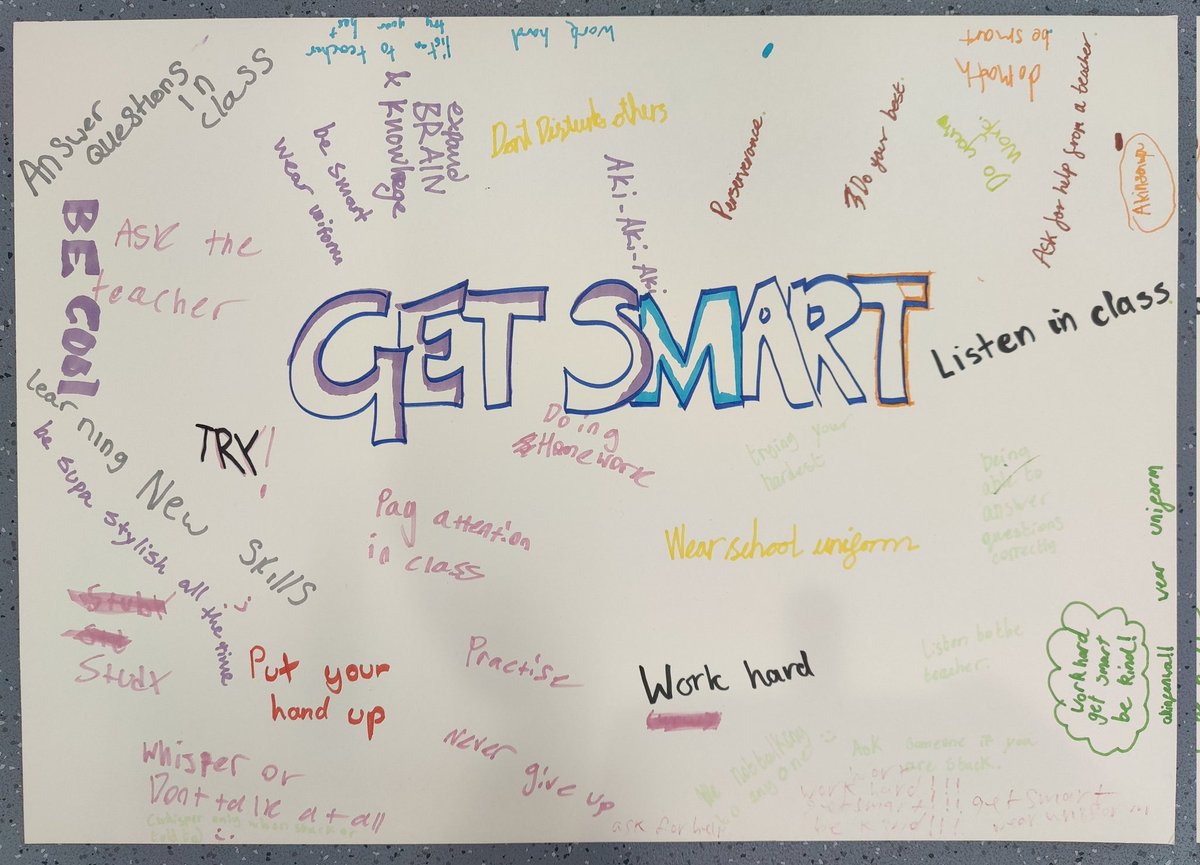 Answer
questions
in
class
try your best
listen to teacher
work hard
expand
BRAIN
& Knowlege
be smart
wear uniform
Dont Disturb others
Aki-Aki-Aki
Perserverance.
Do your best.
Do your
work.
do math
be smart
Ask for help from a teacher.
BE COOl
ASK the
teacher
GET SMART
Listen in class
Learning New Skills
be supa stylish all the time
TRY!
Doing
Homework
trying your
hardest
being
able to
answer
questions
correctly
Pay attention
in class
Wear school uniform
wear uniform
Study
Put your
hand up
Practise
Work hard
Listen to the
teacher.
work hard
get smart
be kind!
Whisper or
Dont talk at all
Never give up
Ask someone if you
are stuck.
ask for help
work hard!!!
get smart!!!
be kind!!!
get smart